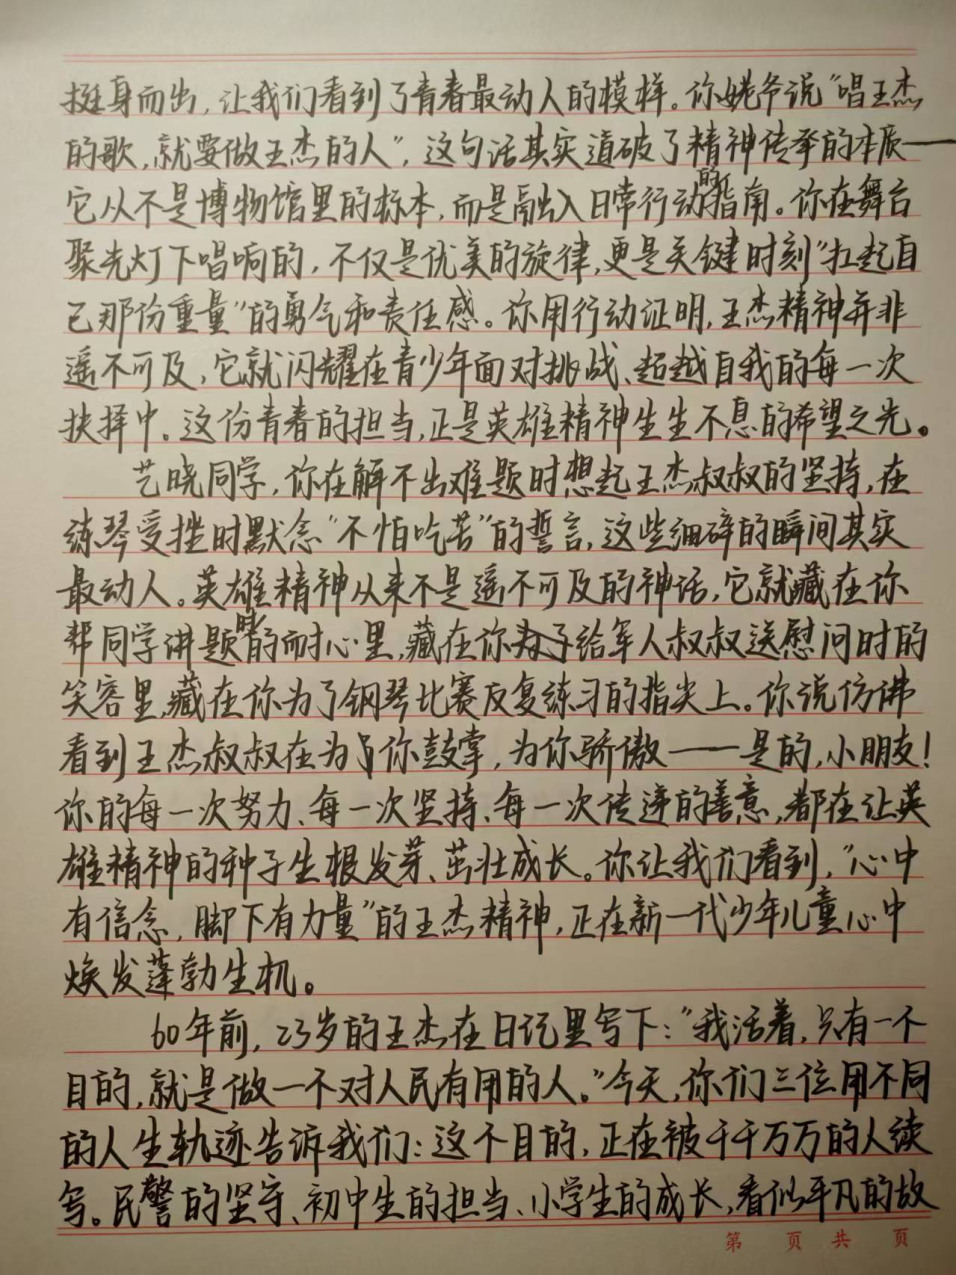 挺身而出，让我们看到了青春最动人的模样。你姥爷说“唱王杰
的歌，就要做王杰的人”，这句话其实道破了精神传承的本质——
它从不是博物馆里的标本，而是融入日常行动的指南。你在舞台
聚光灯下唱响的，不仅是优美的旋律，更是关键时刻“扛起自
己那份重量”的勇气和责任感。你用行动证明，王杰精神并非
遥不可及，它就闪耀在青少年面对挑战、超越自我的每一次
抉择中。这份青春的担当，正是英雄精神生生不息的希望之光。
艺晓同学，你在解不出难题时想起王杰叔叔的坚持，在
练琴受挫时默念“不怕吃苦”的誓言，这些细碎的瞬间其实
最动人。英雄精神从来不是遥不可及的神话，它就藏在你
帮同学讲题时的耐心里，藏在你给军人叔叔送慰问时的
笑容里，藏在你为了钢琴比赛反复练习的指尖上。你说仿佛
看到王杰叔叔在为你鼓掌，为你骄傲——是的，小朋友！
你的每一次努力、每一次坚持、每一次传递的善意，都在让英
雄精神的种子生根发芽、茁壮成长。你让我们看到，“心中
有信念，脚下有力量”的王杰精神，正在新一代少年儿童心中
焕发蓬勃生机。
60年前，23岁的王杰在日记里写下：“我活着，只有一个
目的，就是做一个对人民有用的人。”今天，你们三位用不同
的人生轨迹告诉我们：这个目的，正在被千千万万的人续
写。民警的坚守、初中生的担当、小学生的成长，看似平凡的故
第 页 共 页